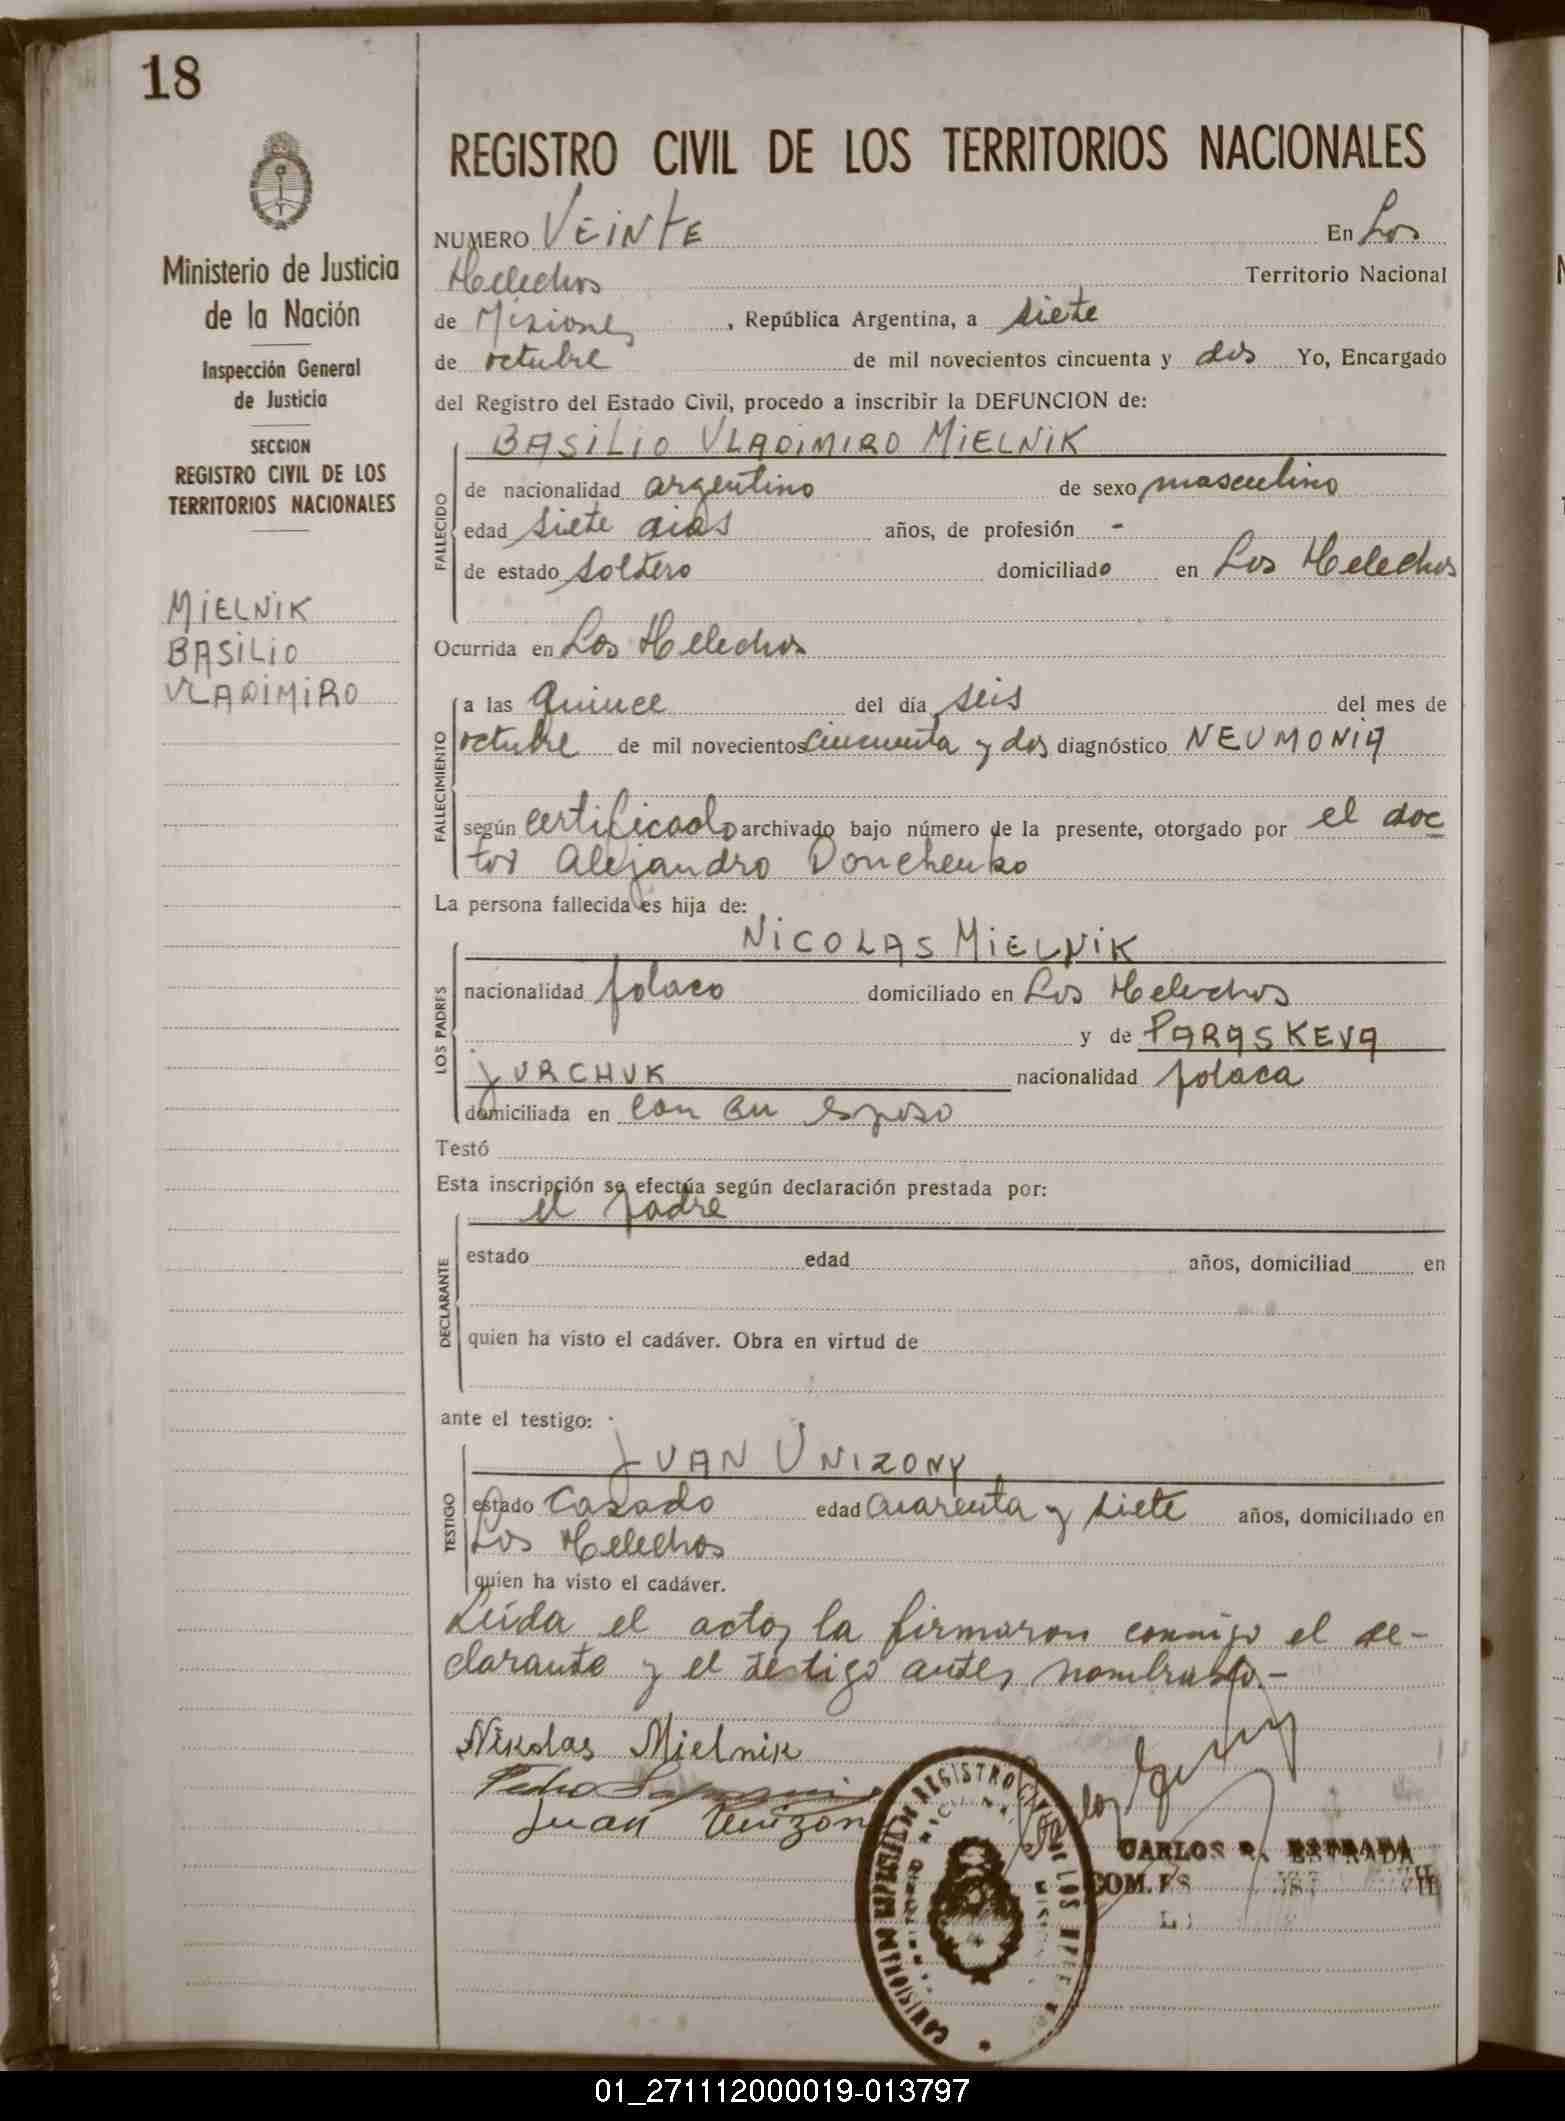 18
REGISTRO CIVIL DE LOS TERRITORIOS NACIONALES
Ministerio de Justicia
de la Nación
Inspección General
de Justicia
SECCION
REGISTRO CIVIL DE LOS
TERRITORIOS NACIONALES
MIELNIK
BASILIO
VLADIMIRO
NUMERO VEINTE En Los
Helechos Territorio Nacional
de Misiones, República Argentina, a siete
de octubre de mil novecientos cincuenta y dos Yo, Encargado
del Registro del Estado Civil, procedo a inscribir la DEFUNCION de:
BASILIO VLADIMIRO MIELNIK
FALLECIDO
de nacionalidad argentino de sexo masculino
edad siete dias años, de profesión -
de estado soltero domiciliado en Los Helechos
Ocurrida en Los Helechos
FALLECIMIENTO
a las quince del día seis del mes de
octubre de mil novecientos cincuenta y dos diagnóstico NEUMONIA
según certificado archivado bajo número de la presente, otorgado por el doc
tor Alejandro Donchenko
La persona fallecida es hija de:
NICOLAS MIELNIK
LOS PADRES
nacionalidad polaco domiciliado en Los Helechos
y de PARASKEVA
JURCHUK nacionalidad polaca
domiciliada en con su esposo
Testó
Esta inscripción se efectúa según declaración prestada por:
el padre
DECLARANTE
estado edad años, domiciliad en
quien ha visto el cadáver. Obra en virtud de
ante el testigo:
JUAN UNIZONY
TESTIGO
estado casado edad cuarenta y siete años, domiciliado en
Los Helechos
quien ha visto el cadáver.
Leída el acta, la firmaron conmigo el de-
clarante y el testigo antes nombrado.-
Nikolas Mielnik
Juan
CARLOS R. ESTRADA
01_271112000019-013797